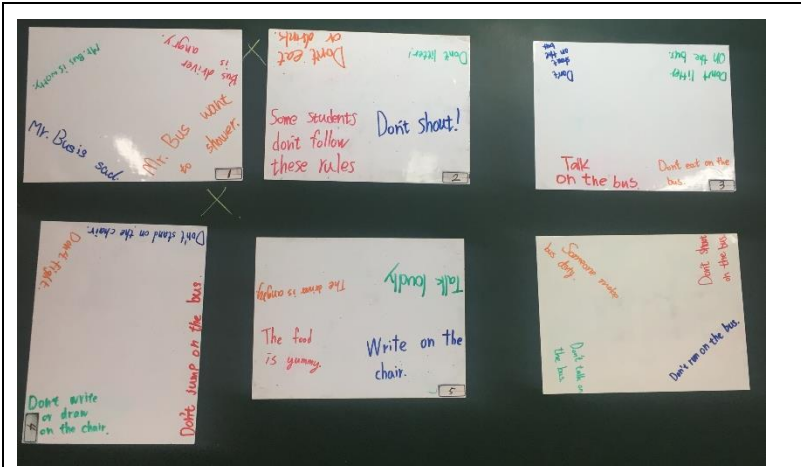 Mr. Bus is
Bus driver
is
angry.
Mr. Bus is sad.
Mr. Bus want
to shower.
1
Don't eat
or drinks.
Dont litter!
Some students
don't follow
these rules
Don't shout!
2
Don't
shout
on the
bus
Don't litter
On the bus.
Talk
on the bus.
Don't eat on the
bus.
3
Don't fight.
Don't stand on the chair.
Don't jump on the bus
Dont write
or draw
on the chair.
4
The driver is angry
Talk loudly
The food
is yummy.
Write on the
chair.
5
Someone make
bus dirty.
Don't
on the bus.
Don't talk on
the bus
Don't run on the bus.